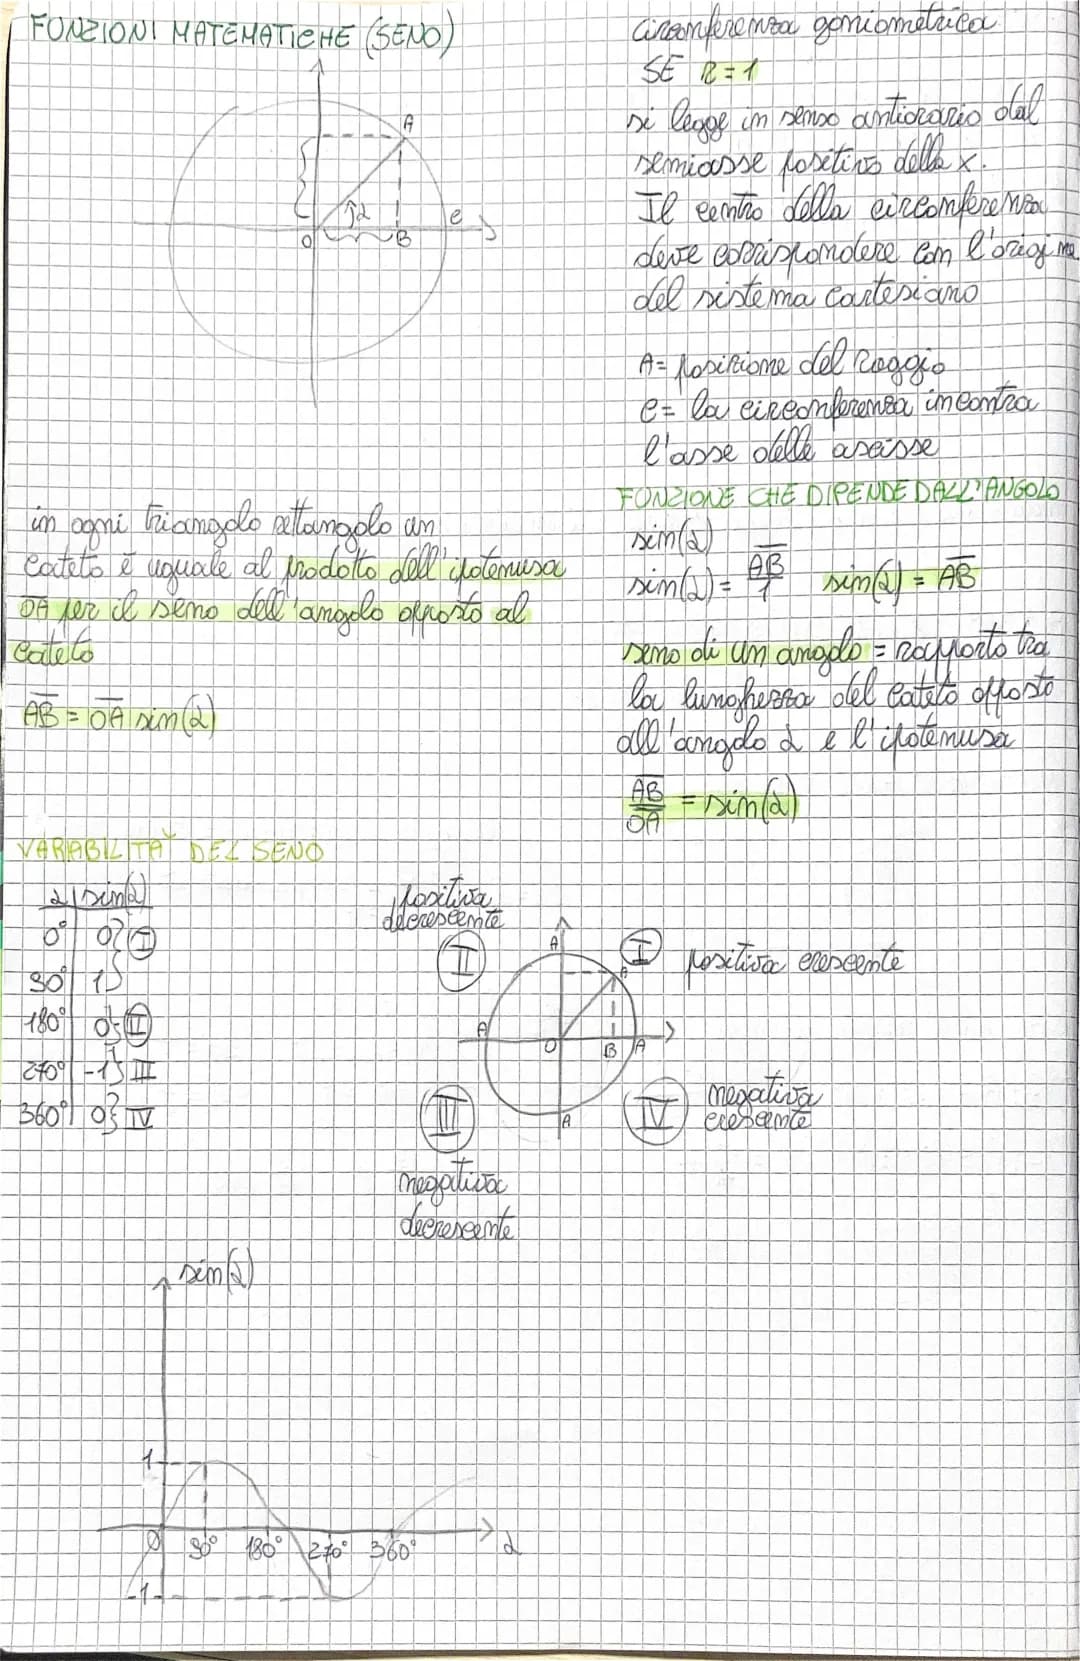 FUNZIONI MATEMATICHE (SENO)
A
α
e
O
B
circonferenza goniometrica
SE R=1
si legge in senso antiorario dal
semiasse positivo della x.
Il centro della circonferenza
deve corrispondere con l'origine
del sistema cartesiano
A= posizione del raggio
e= la circonferenza incontra
l'asse delle ascisse
FUNZIONE CHE DIPENDE DALL'ANGOLO
sin(α)
sin(α) = AB/1 sin(α) = AB
seno di un angolo = rapporto tra
la lunghezza del cateto opposto
all'angolo α e l'ipotenusa
AB/OA = sin(α)
in ogni triangolo rettangolo un
cateto è uguale al prodotto dell'ipotenusa
OA per il seno dell'angolo opposto al
cateto
AB = OA sin(α)
VARABILITÀ DEL SENO
α | sin(α)
0° 0} I
90° 1}
180° 0} II
270° -1} III
360° 0} IV
positiva
decrescente
II
A
I
A
positiva crescente
A
O
B
A
III
A
IV
negativa
crescente
negativa
decrescente
sin(α)
1
0
90° 180° 270° 360°
α
-1